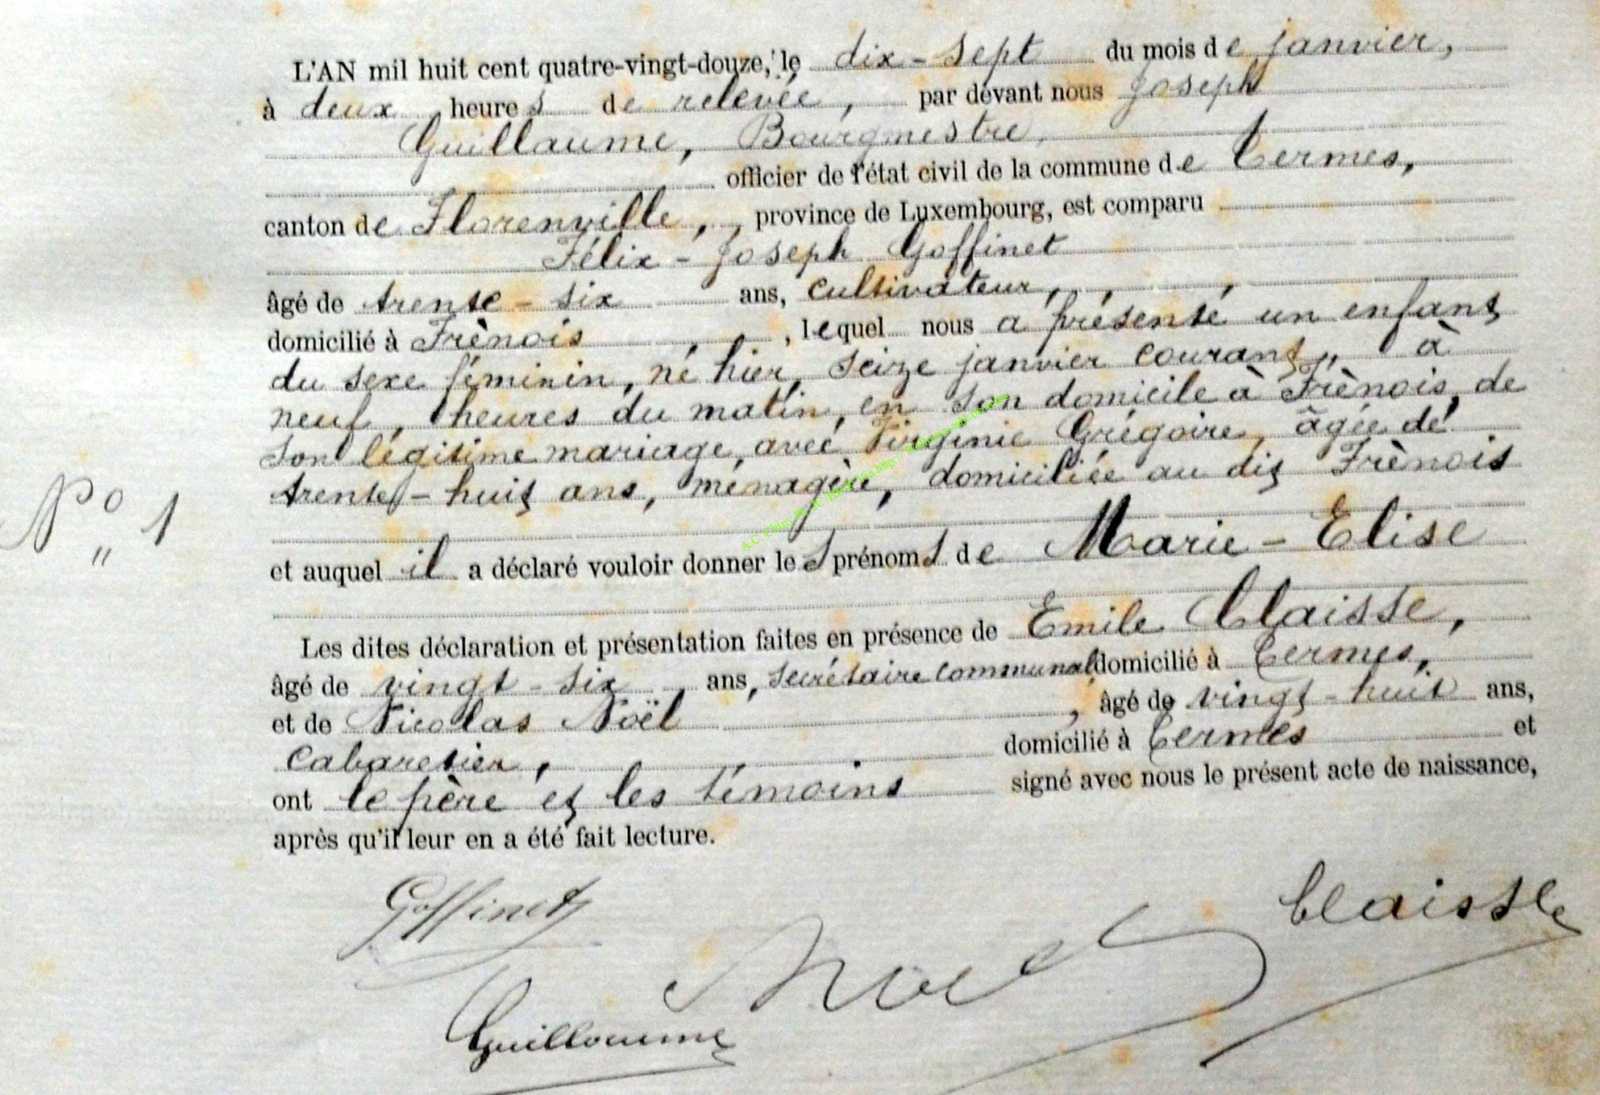 L'AN mil huit cent quatre-vingt-douze, le dix-sept du mois de janvier,
à deux heures de relevée, par devant nous Joseph
Guillaume, Bourgmestre,
officier de l'état civil de la commune de Termes,
canton de Florenville, province de Luxembourg, est comparu
Félix-Joseph Goffinet
âgé de trente-six ans, cultivateur,
domicilié à Frènois, lequel nous a présenté un enfant
du sexe féminin, né hier, seize janvier courant, à
neuf heures du matin, en son domicile à Frènois, de
son légitime mariage, avec Virginie Grégoire, âgée de
trente-huit ans, ménagère, domiciliée au dit Frènois
N° 1
et auquel il a déclaré vouloir donner les prénoms de Marie-Elise
Les dites déclaration et présentation faites en présence de Emile Claisse,
âgé de vingt-six ans, secrétaire communal domicilié à Termes,
et de Nicolas Noël, âgé de vingt-huit ans,
cabaretier, domicilié à Termes et
ont le père et les témoins signé avec nous le présent acte de naissance,
après qu'il leur en a été fait lecture.
Goffinet
Claisse
Noel
Guillaume